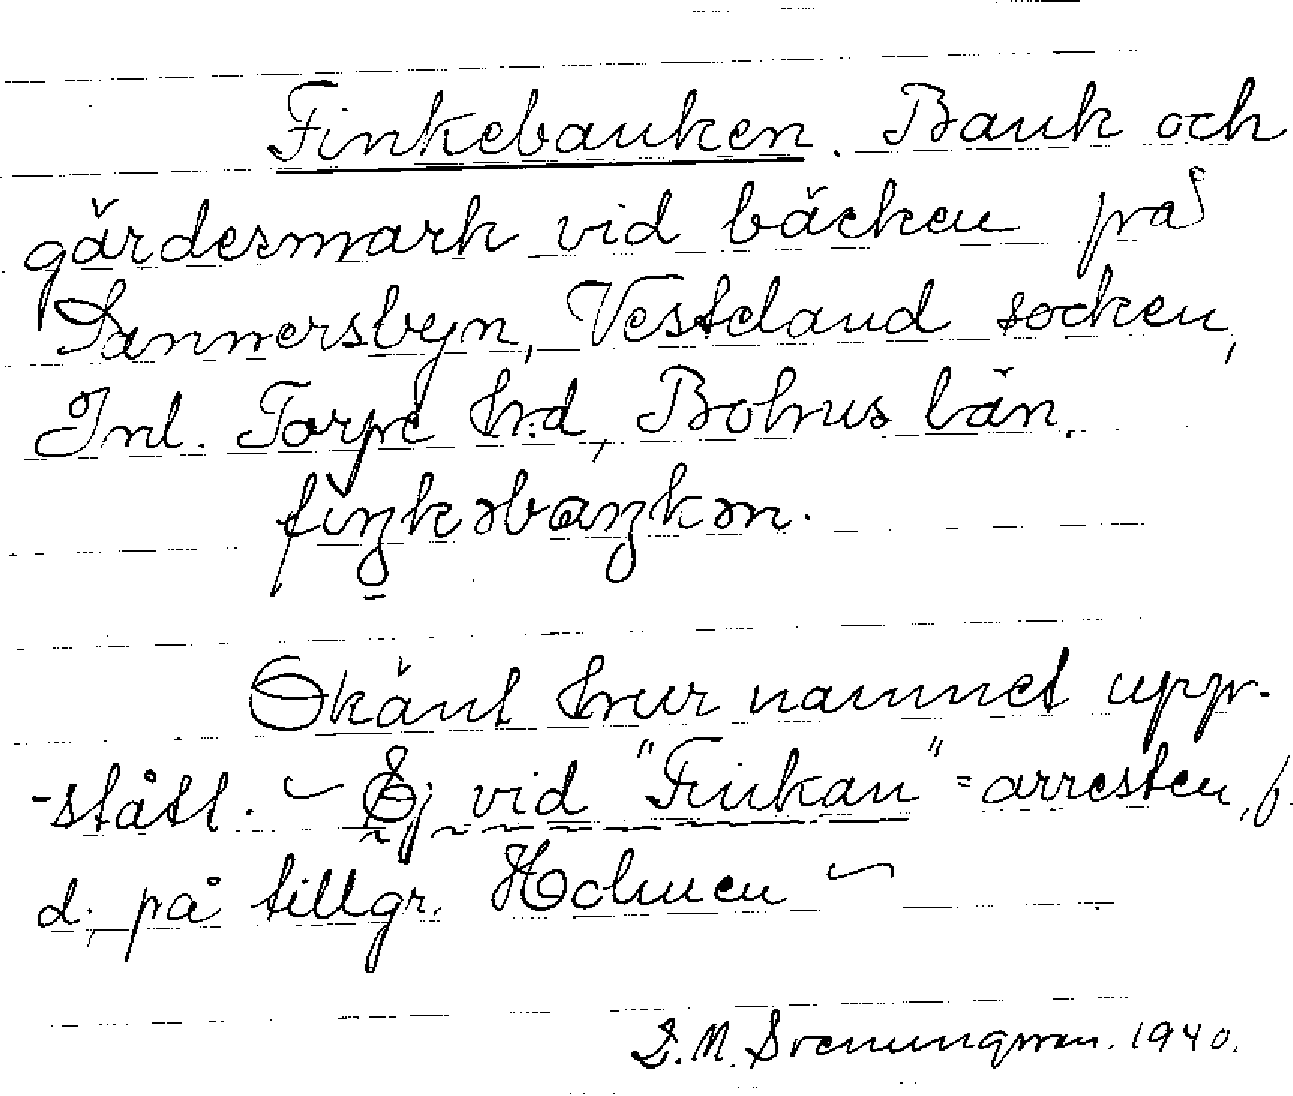 Finkebanken. Bank och
gärdesmark vid bäcken på
Sannersbyn, Vesteland socken,
Inl. Torpe h:d, Bohus län.
fiŋkəbaŋkən.
Okänt hur namnet upp-
-stått. – Ej vid "Finkan" = arresten, f.
d. på tillgr. Holmen –
S. M. Svenungsson. 1940.